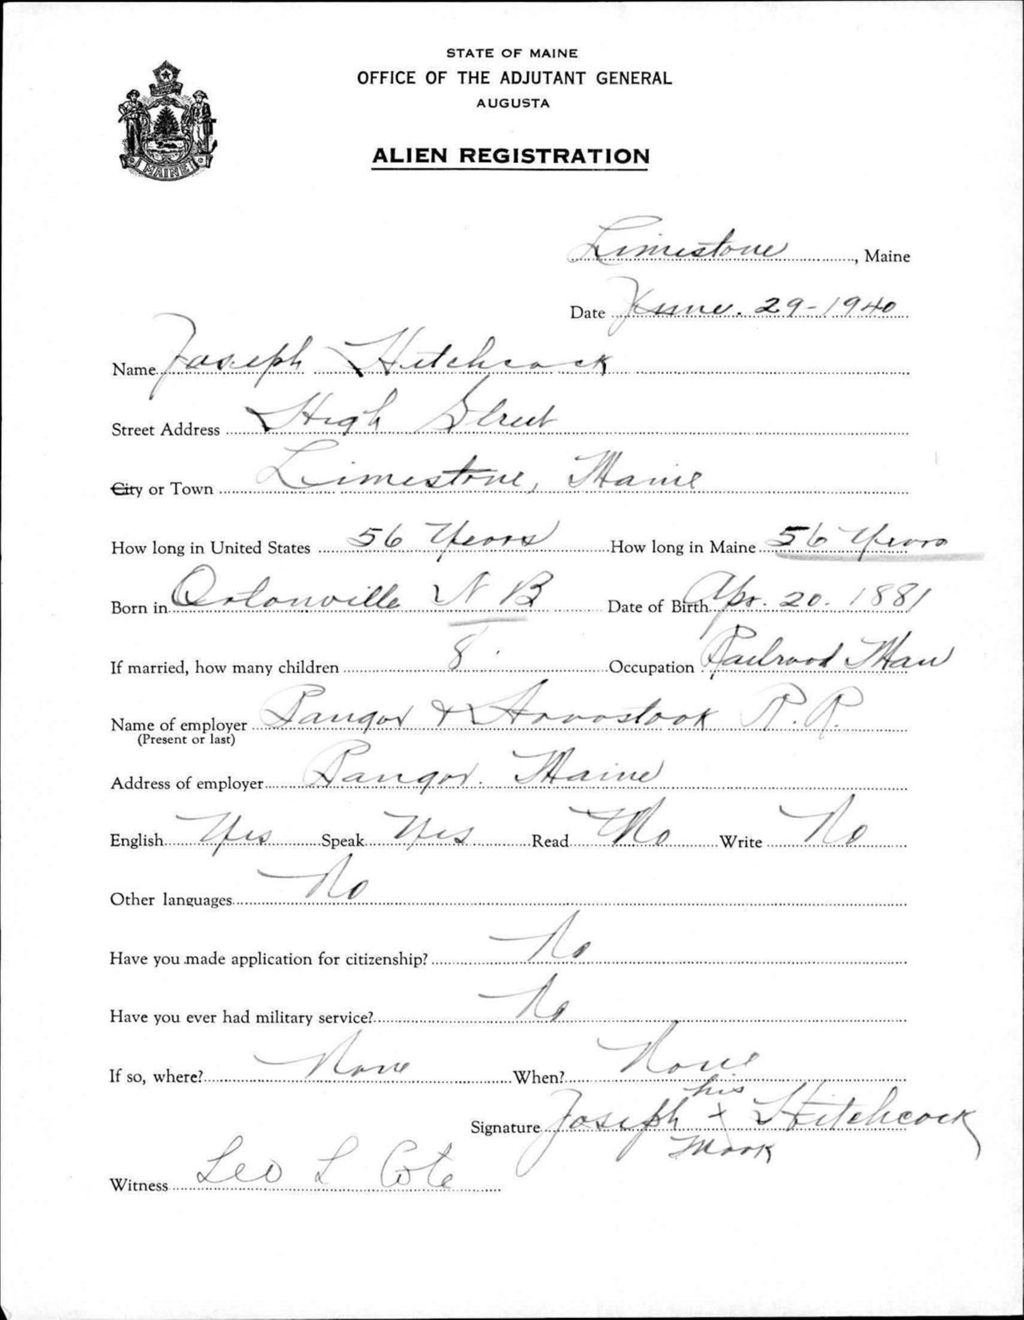 STATE OF MAINE
OFFICE OF THE ADJUTANT GENERAL
AUGUSTA
ALIEN REGISTRATION
MAINE
Limestone, Maine
Date June. 29-1940
Name Joseph Hitchcock
Street Address High Street
City or Town Limestone, Maine
How long in United States 56 Years How long in Maine 56 Years
Born in Ortonville N B Date of Birth Apr. 20. 1881
If married, how many children 8. Occupation Railroad Man
Name of employer Bangor & Aroostook R. R.
(Present or last)
Address of employer Bangor. Maine
English Yes Speak Yes Read No Write No
Other languages No
Have you made application for citizenship? No
Have you ever had military service? No
If so, where? None When? None
his
Signature Joseph x Hitchcock
Mark
Witness Leo L Cote